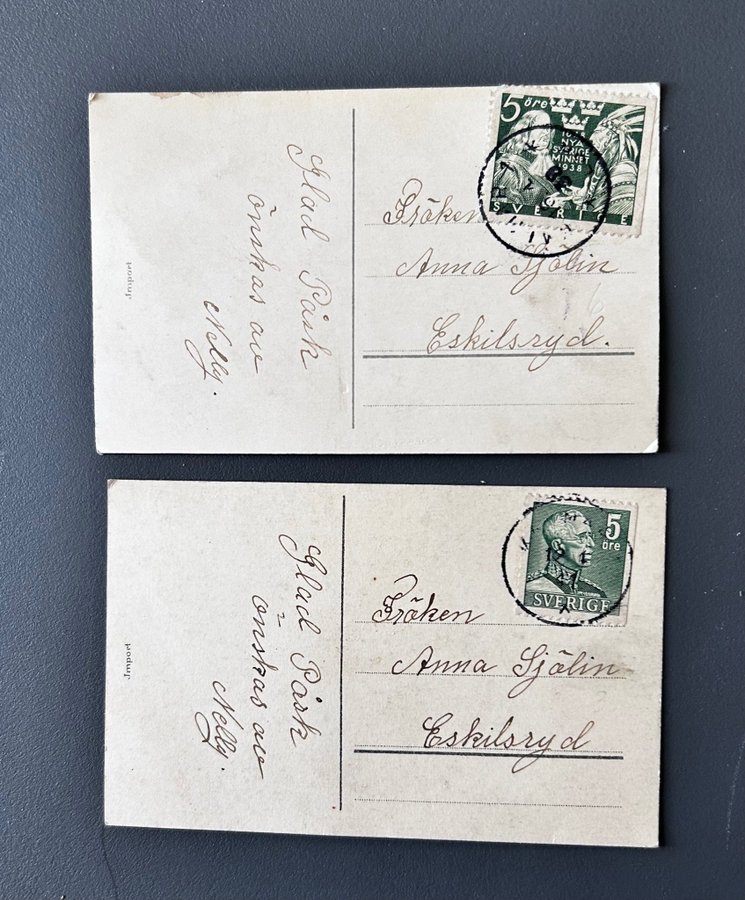 5 öre
NYA
SVERIGE
MINNET
1938
SVERIGE
Glad Påsk
önskas av
Nelly.
Fröken
Anna Sjölin
Eskilsryd.
Import
5
öre
SVERIGE
Glad Påsk
önskas av
Nelly.
Fröken
Anna Sjölin
Eskilsryd
Import